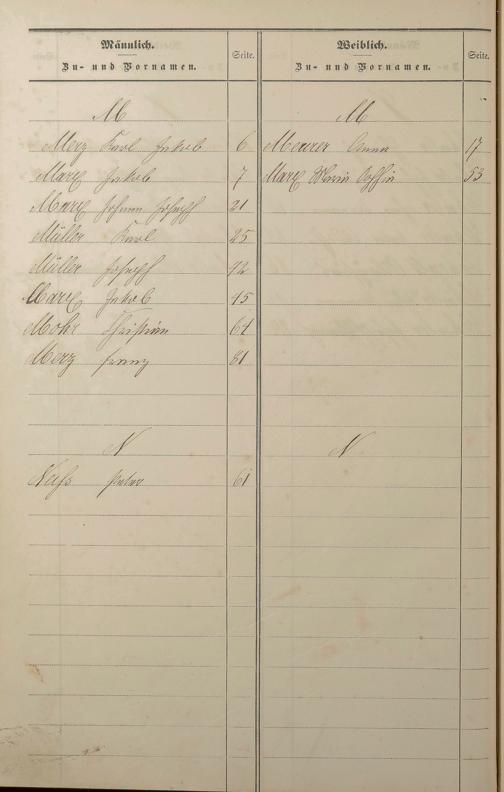 Männlich.
Zu- und Vornamen.
Seite.
M
Merz Karl Jakob 6
Marx Jakob 7
Marx Johann Joseph 21
Müller Karl 25
Müller Joseph
Marx Jakob 45
Mohr Christian 64
Merz Franz 81
N
Naß Peter 61
Weiblich.
Zu- und Vornamen.
Seite.
M
Meurer Anna 17
Marx Maria 53
N